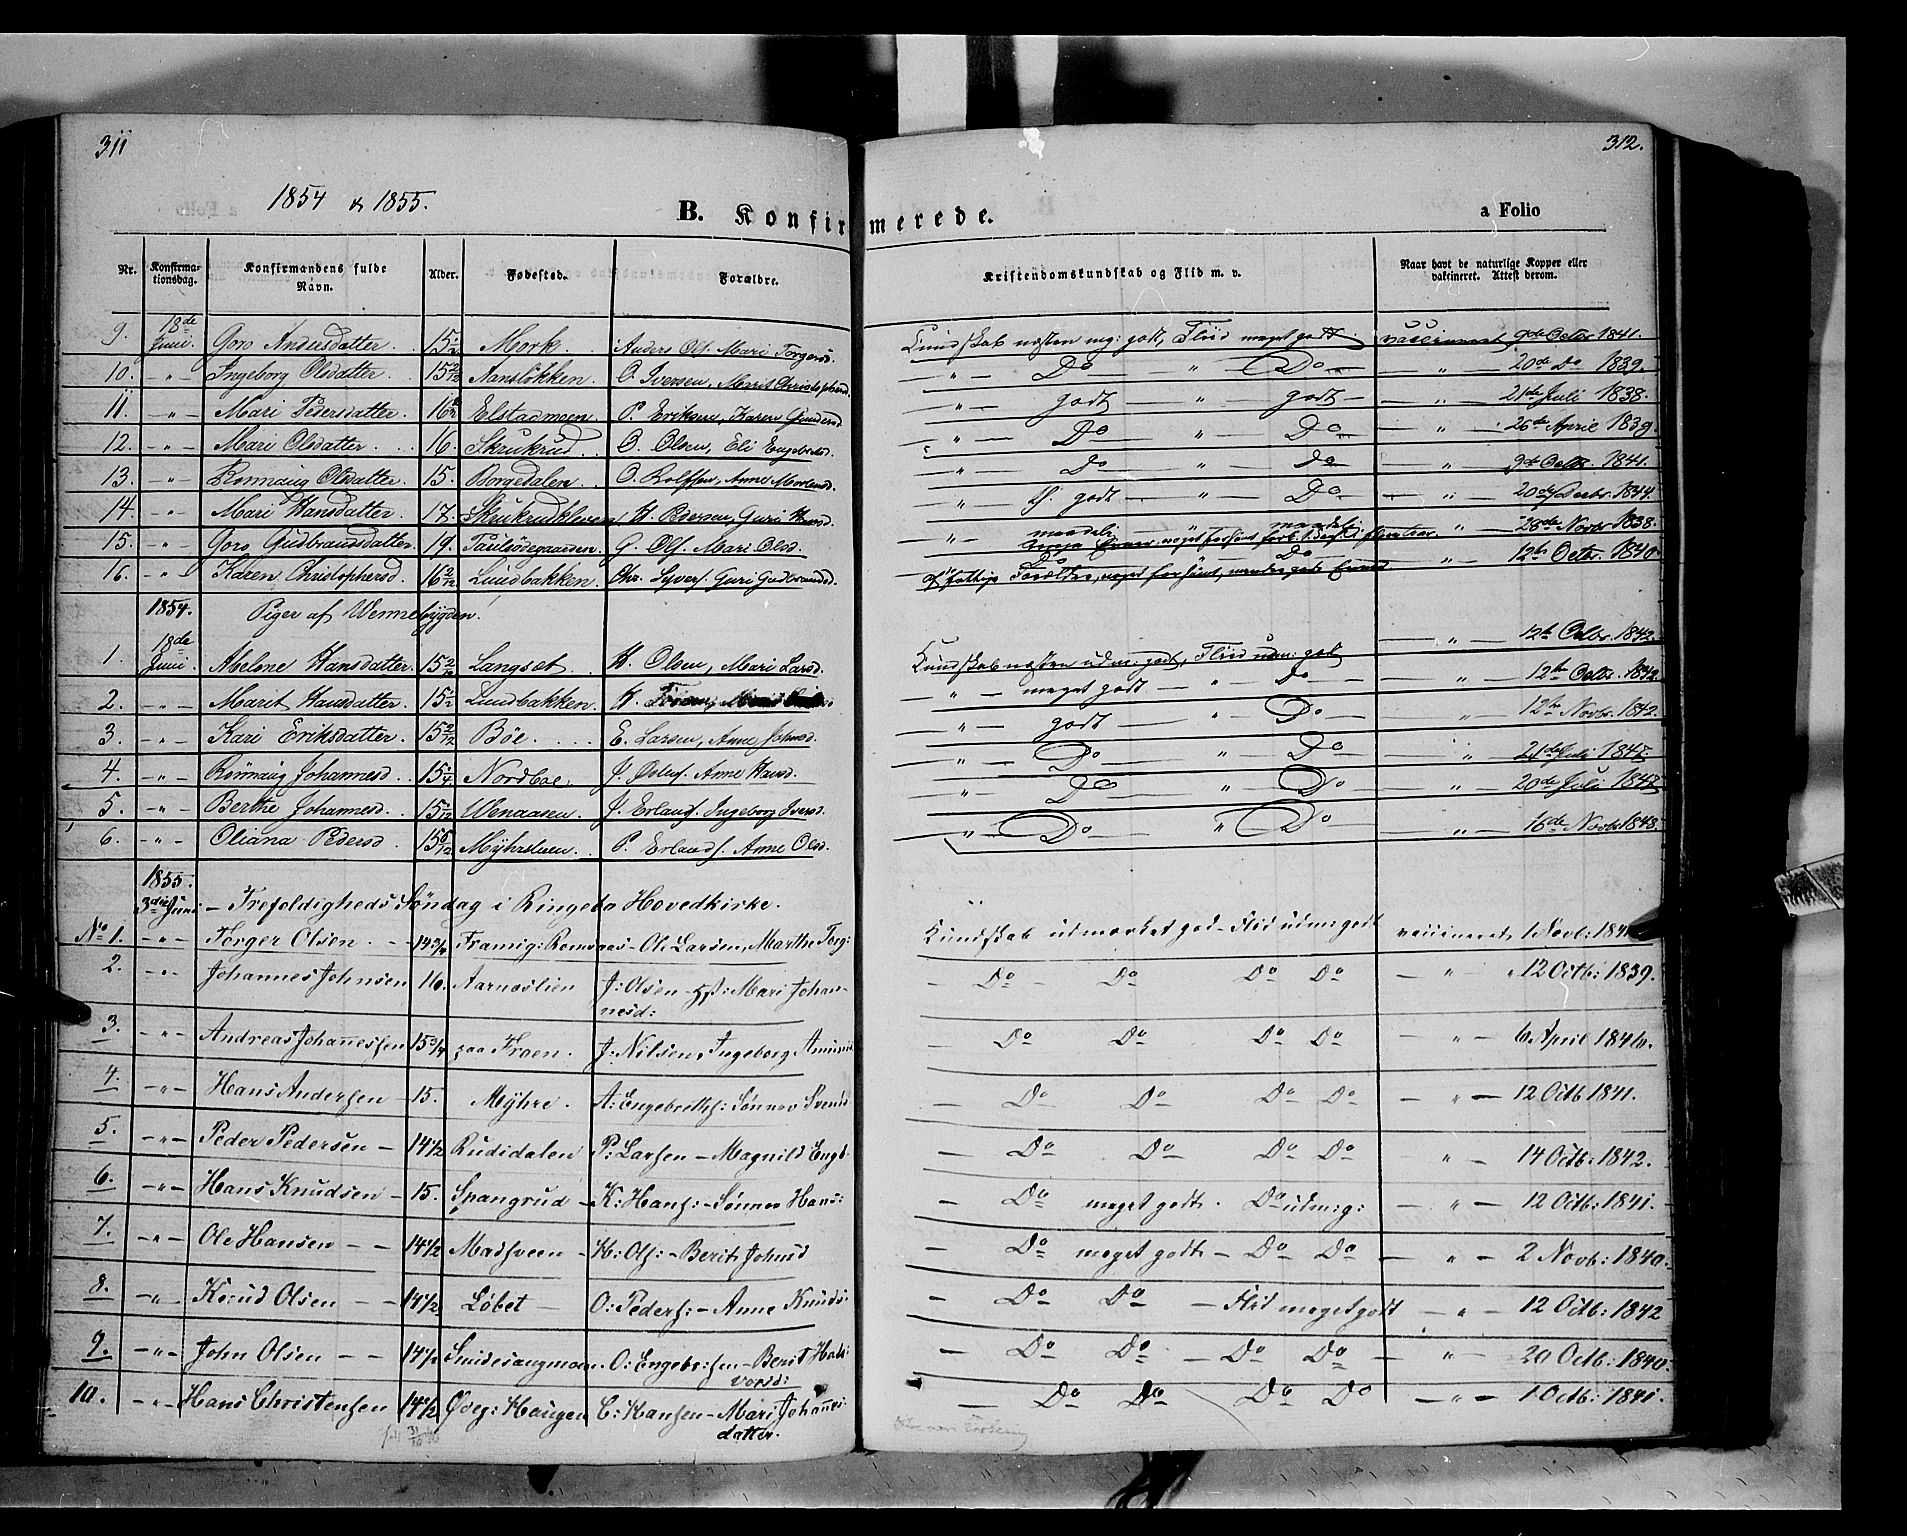 311
312.
1854 & 1855.
B. Konfirmerede.
a Folio
Nr. Konfirmationsdag. Konfirmandens fulde Navn. Alder. Fødested. Forældre. Kristendomskundskab og Flid m. v. Naar havt de naturlige Kopper eller vakcineret. Attest derom.
9. 18de Juni Goro Andersdatter. 15 1/2 Mork. Anders Ols. Mari Torgersd. Kundskab næsten meg: godt, Fliid meget godt. vaccineret 9de Octbr 1841.
10. -"- Ingeborg Olsdatter. 15 2/12 Aansløkken. O. Iversen, Marit Christophersd. -"- Do " Do - " - 20de Do 1839.
11. -"- Mari Pedersdatter. Elstadmoen P. Eriksen, Karen -"- godt -"- godt - " - 21de Juli 1838.
12. -"- Mari Olsdatter. 16. Skrukrud. O. Olsen, Eli Engebretsd. -"- Do " Do " 26de April 1839.
13. -"- Rønnaug Olsdatter. 15. Borgedalen. O. Rolfsen, Anne -"- Do " do " 9de Octbr. 1841.
14. -"- Mari Hansdatter. 17. Skrukrudkleven H. Pedersen, Guri Hansd. -"- godt -"- Do - " - 20de 1844.
15. -"- Goro Gudbrandsdatter. 19. G. Ols. Mari Olsd. -"- maadeli " maadeli " 28de Novbr 1838.
16. -"- Karen Christophersd. 16 2/12 Lundbakken. Chr. Syvers. Guri Gudbrandsd. Do Do 12te Octbr. 1840.
af fattige Forældre, meget forsømt,
1854. Piger af Wennebygden.
1. 18de Juni Abelone Hansdatter. 15 2/12 Langset. H. Olsen, Mari Larsd. Kundskab næsten udm: godt, Fliid udm: godt - " - 12te Octbr. 1842.
2. -"- Marit Hansdatter. 15 1/2 Lundbakken. H. -"- meget godt -"- Do - " - 12te Octbr. 1842.
3. -"- Kari Eriksdatter. 15 2/12 Böe. E. Larsen, Anne Johnsd. -"- godt -"- Do " 12te Novbr. 1842.
4. -"- Rönnaug Johannesd. 15 1/4 Nordboe. J. Anne Hansd. -"- Do " Do " 21de Juli 1847.
5. -"- Berthe Johannesd. Wenaasen. J. Erlands. Ingeborg Iversd. -"- Do " Do " 20de Juli 1847.
6. -"- Oliana Pedersd 15 5/12 P. Erlands. Anne Olsd. -"- Do " Do " 16de Novbr 1848.
1855.
3die Juni - Trefoldigheds Søndag i Ringebo Hovedkirke.
No 1. -"- Torger Olsen 14 3/4 Framig: Romsaas - Ole Larsen, Marthe Torg: Kundskab udmærket god - Flid udm: godt vaccineret 1 Novb:
2. -"- Johannes Johnsen 16. Aarnæslien J: Olsen - Mari Johannesd: - Do Do Do Do - " - 12 Octb: 1839.
3. -"- Andreas Johañessen 15 3/4 paa Fraen. J: Nilsen, Ingeborg Amund: Do Do Do Do - " - 6 April 1846.
4. -"- Hans Andersen - 15. Mÿhre. A: Engebretts: Sønnov Svends - Do Do Do Do - " - 12 Octb 1841.
5. -"- Peder Pedersen - 14 1/2 Rudidalen P: Larsen - Magnild Engb. - Do Do Do Do " - 14 Octb: 1842.
6. -"- Hans Knudsen - 15. Spangrud - K: Hans: - Sønnov Hans: - Do meget godt. Do udm: g: - " - 12 Octb: 1841.
7. -"- Ole Hansen - - 14 1/2 Madsveen - H: Ols: - Berit Johnsd - Do meget godt - Do Do - " - 2 Novb: 1840.
8. -"- Knud Olsen - - 14 1/2 Løbet - O: Peders: - Anne Knuds: - Do Do - Flid meget godt - " - 12 Octb: 1842
9. -"- John Olsen - - 14 1/2 O: Engebr:sen - Berit Halvorsd: - Do Do - Do Do - " - 20 Octb: 1840.
10. -"- Hans Christensen 14 1/2 Øveg: Haugen C: Hansen - Mari Johañesdatter. - Do Do Do Do - " - 1 Octb: 1841.